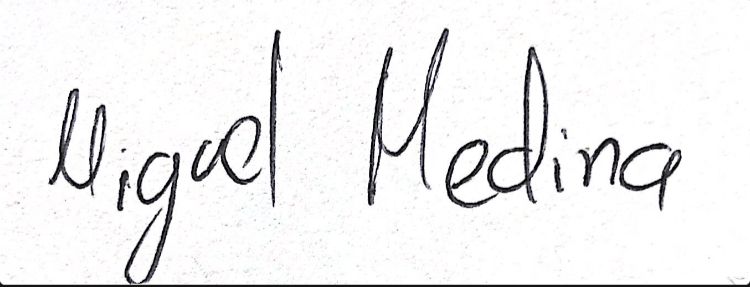 Miguel Medina